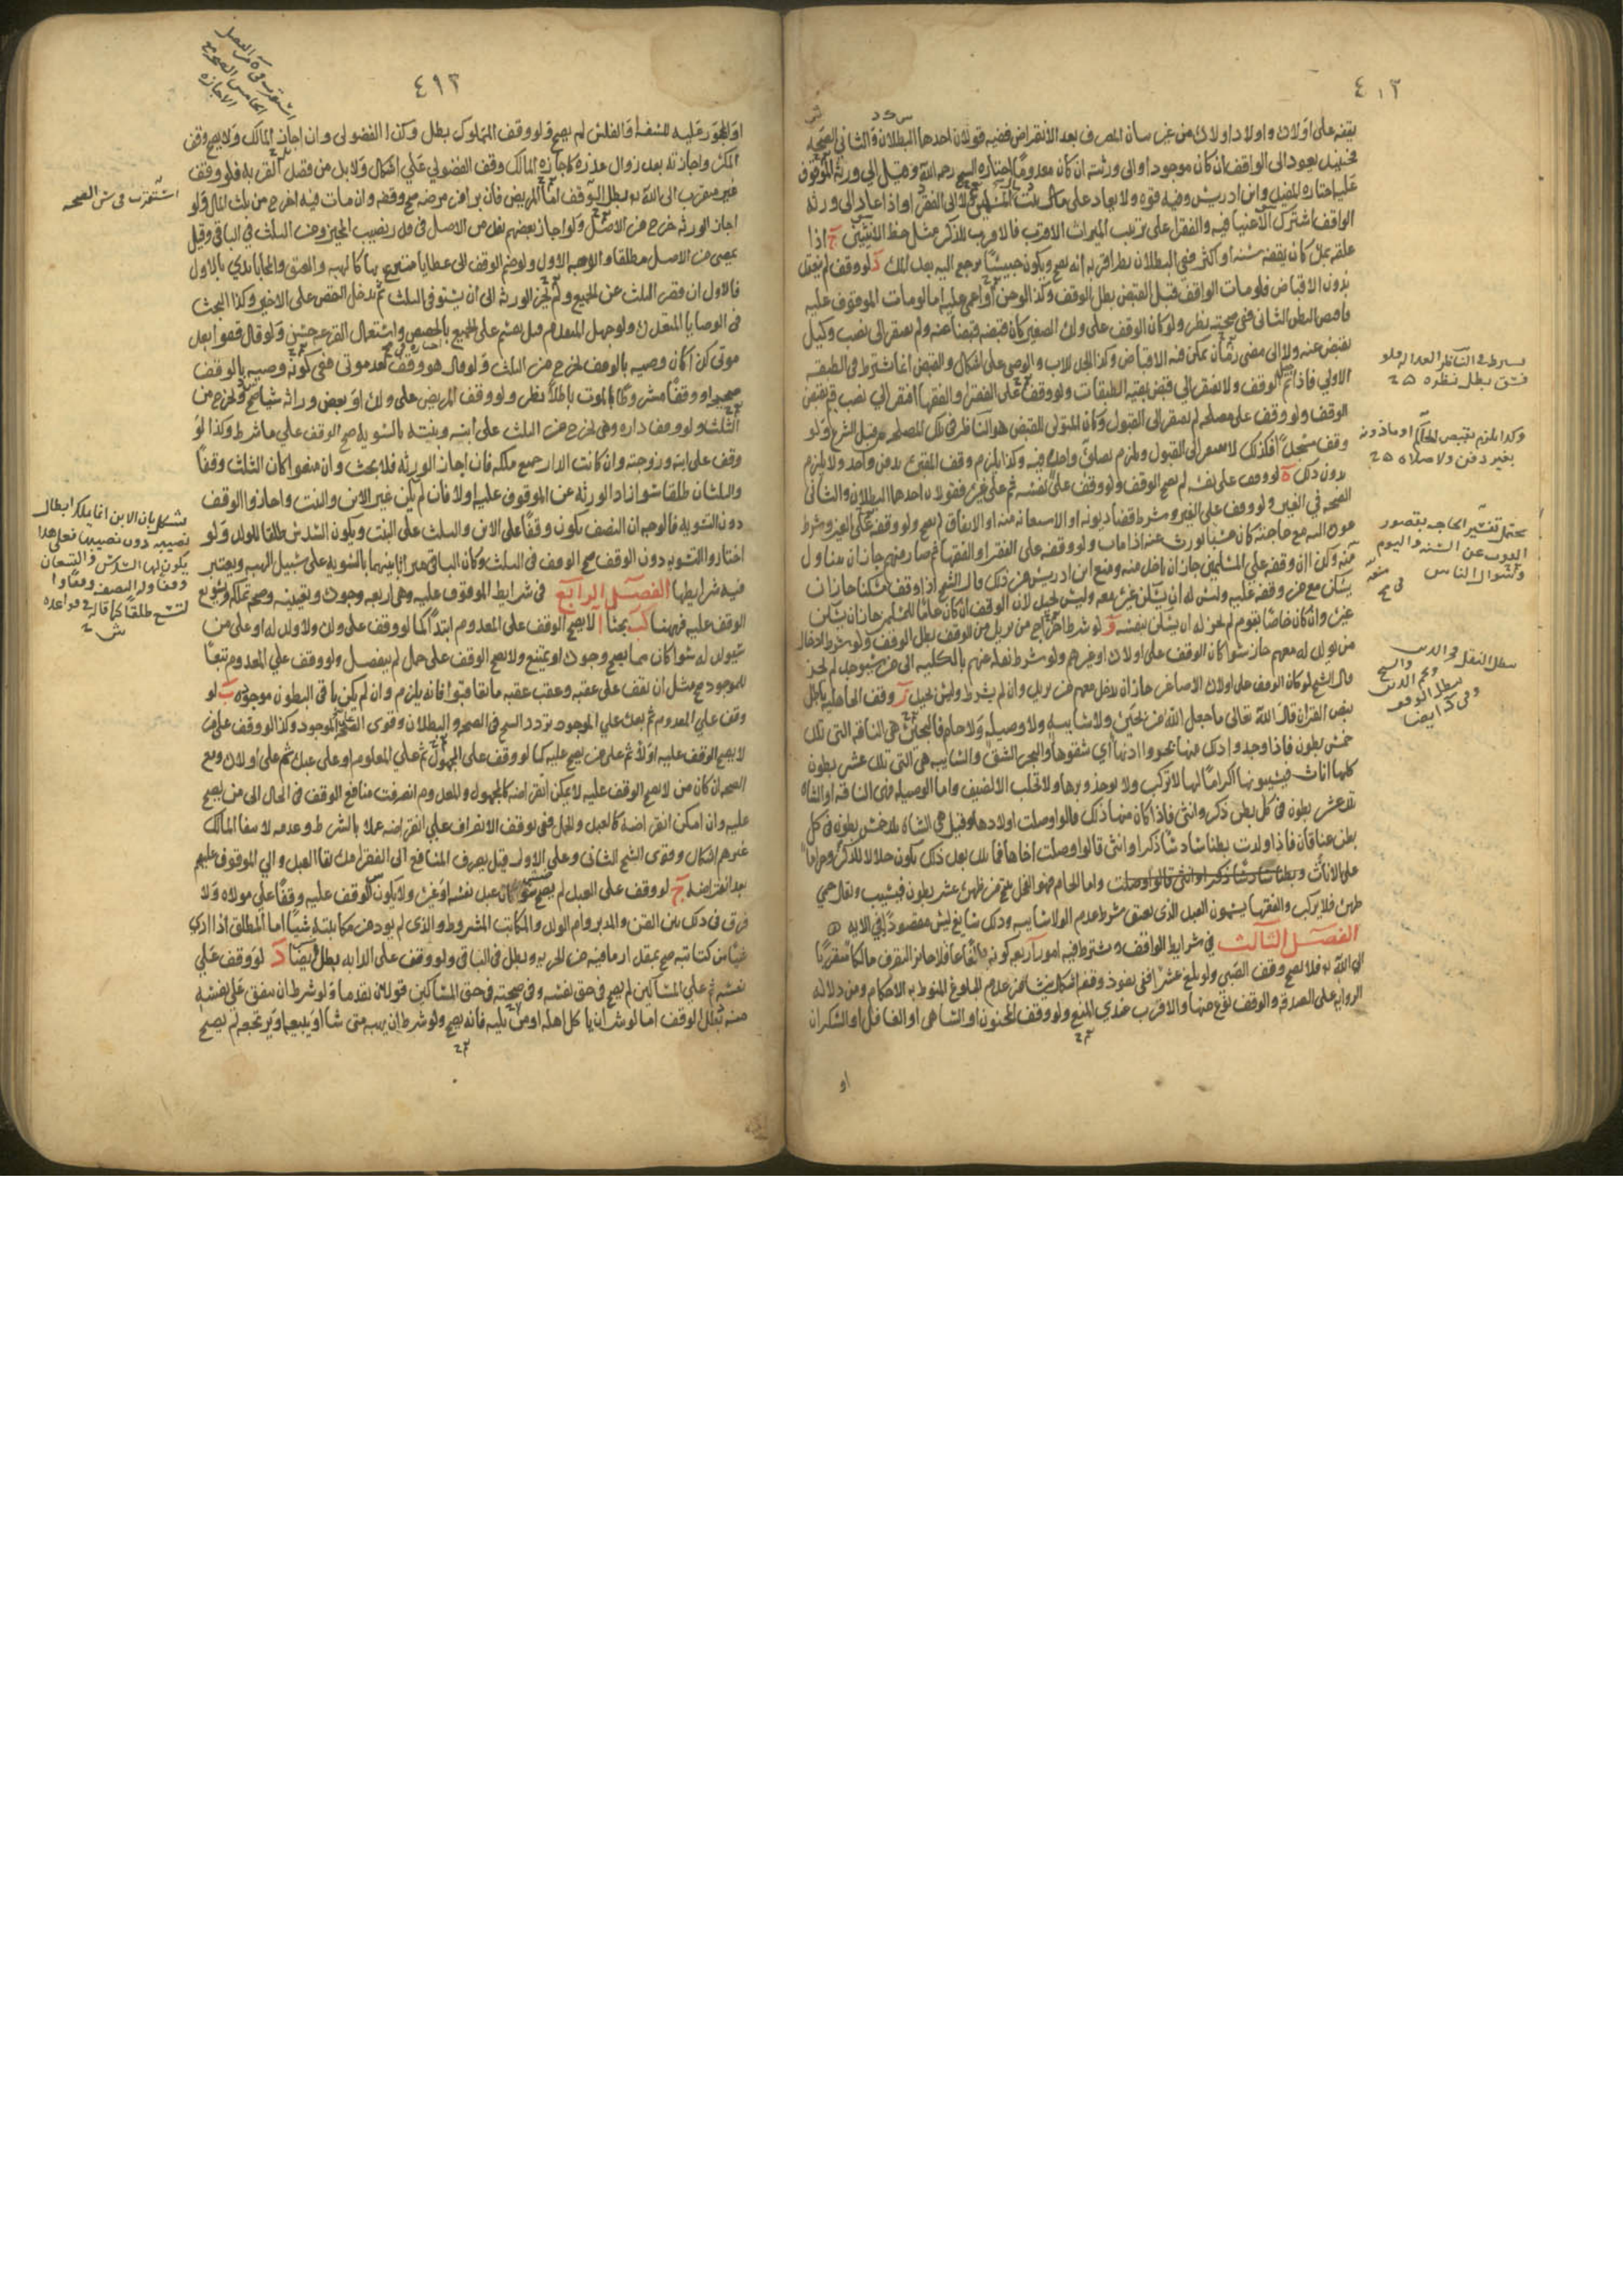 ٤١٢
يقفه على اولاده واولاد اولاده من غير بيان المصرف بعد الانقراض ففيه قولان احدهما البطلان والثاني الصحة
فحينئذ يعود الى الواقف ان كان موجودا او الى ورثته ان كان معدوما اختاره الشيخ رحمه الله وقيل الى ورثة الموقوف
عليه اختاره المفيد وابن ادريس وفيه قوة ولا يعاد على مالك لا الى الفقراء واذا عاد الى ورثة
الواقف اشترك الاغنيا فيه والفقرا على ترتيب الميراث الاقرب فالاقرب للذكر مثل حظ الانثيين ج اذا
علقه بمدة كان يقفه سنة او اكثر ففي البطلان نظر اقربه انه يصح ويكون حبيسا يرجع اليه بعد المدة د لو وقف لم ينتقل
بدون الاقباض فلو مات الواقف قبل القبض بطل الوقف وكذا لو جن او اغمي عليه اما لو مات الموقوف عليه
فاقبض البطن الثاني ففي صحته نظر ولو كان الوقف على ولده الصغير كان قبضه قبضا عنه ولم يفتقر الى نصب وكيل
يقبض عنه ولا الى مضي زمان يمكن فيه الاقباض وكذا الجد للاب والوصي على اشكال والقبض انما يشترط في الطبقة
الاولى فاذا تم الوقف ولا يفتقر الى قبض بقية الطبقات ولو وقف على الفقرا والفقها افتقر الى نصب قيم يقبض
الوقف ولو وقف على مصلحة لم يفتقر الى القبول وكان المتولي للقبض هو الناظر في تلك المصلحة من قبل الشرع ولو
وقف مسجدا فكذلك لا يفتقر الى القبول ويلزم بصلاة واحدة فيه وكذا يلزم وقف المقبرة بدفن واحد ولا يلزم
بدون ذلك ه لو وقف على نفسه لم يصح الوقف ولو وقف على نفسه ثم على غيره فقولان احدهما البطلان والثاني
الصحة في الغير ولو وقف على الغير وشرط قضا ديونه او الاستعانة منه او الانفاق لم يصح ولو وقفه على الغير وشرط
عوده اليه مع حاجته كان حبسا يورث عنه اذا مات ولو وقفه على الفقرا او الفقها ثم صار منهم جاز ان يتناول
منه وكذا ان وقف على المسلمين جاز ان ياخذ منه ومنع ابن ادريس من ذلك قال الشيخ اذا وقف مسكنا جاز ان
يسكن مع من وقفه عليه وليس له ان يسكن غيره معه وليس بجيد لان الوقف ان كان عاما للمسلمين جاز ان يسكن
غيره وان كان خاصا بقوم لم يجز له ان يسكن بنفسه و لو شرط اخراج من يريد من الوقف بطل الوقف ولو شرط ادخال
من يولد له معهم جاز سوا كان الوقف على اولاده او غيرهم ولو شرط نقله عنهم بالكلية الى من سيوجد لم يجز
قال الشيخ لو كان الوقف على اولاده الاصاغر جاز ان يدخل معهم من يريد وان لم يشرط وليس بجيد ز وقف الجاهلية باطل
بنص القران قال الله تعالى ما جعل الله من بحيرة ولا سايبة ولا وصيلة ولا حام فالبحيرة هي الناقة التي تلد
خمس بطون فاذا وجدوا ذلك منها بحروا اذنها اي شقوها والبحر الشق والسايبة هي التي تلد عشر بطون
كلها اناث فيسيبونها اكراما لها لا تركب ولا يوخذ وبرها ولا تحلب الا لضيف واما الوصيلة فهي الناقة او الشاة
تلد عشر بطون في كل بطن ذكر وانثى فاذا كان منها ذلك قالوا وصلت اولادها وقيل هي الشاة تلد خمس بطون في كل
بطن عناقان فاذا ولدت بطنا سادسا ذكرا وانثى قالوا وصلت اخاها فما تلد بعد ذلك يكون حلالا للذكر وحراما
على الاناث وبطنا سادسا ذكرا وانثى قالوا وصلت واما الحام فهو الفحل ينتج من ظهره عشر بطون فيسيب ويقال حمي
ظهره فلا يركب والفقها يسمون العبد الذي يعتق بشرط عدم الولا سايبة وذلك سايغ ليس مقصودا في الاية ه
الفصل الثالث في شرايط الواقف ويشترط فيه امور اربعة كونه بالغا عاقلا جايز التصرف مالكا متقربا
الى الله به فلا يصح وقف الصبي ولو بلغ عشرا ففي نفوذ وقفه اشكال ينشا من عدم البلوغ المنوط به الاحكام ومن دلالة
الرواية على الصدقة والوقف نوع منها والاقرب عندي المنع ولو وقف المجنون او الساهي او الغافل او السكران
او
يشترط في الناظر العدالة فلو
فسق بطل نظره
وكذا يلزم بقبض الحاكم او ماذونه
بغير دفن ولا صلاة
يحتمل تفسير الحاجة بقصور
القوت عن السنة واليوم
وبسؤال الناس
وفي كذا ايضا
٤١٣
او المحجور عليه للسفه او الفلس لم يصح ولو وقف المملوك بطل وكذا الفضولي وان اجاز المالك ولا يصح وقف
المكره واجازته بعد زوال عذره كاجازة المالك وقف الفضولي على اشكال ولا بد من قصد القربة فلو وقف
غير متقرب الى الله به بطل الوقف اما المريض فان برا من مرضه صح وقفه وان مات فيه اخرج من ثلث المال ولو
اجاز الورثة خرج من الاصل ولو اجاز بعضهم نفذ من الاصل في قدر نصيب المجيز ومن الثلث في الباقي وقيل
يمضي من الاصل مطلقا والاوجه الاول ولو ضم الوقف الى عطايا متبرع بها كالهبة والعتق والمحاباة بدي بالاول
فالاول ان قصر الثلث عن الجميع ولم يجز الورثة الى ان يستوفى الثلث ثم يدخل النقص على الاخير وكذا البحث
في الوصايا المتعددة ولو جهل المتقدم قيل يقسم على الجميع بالحصص واستعمال القرعة حسن ولو قال قفوا بعد
موتي كذا كان وصية بالوقف يخرج من الثلث ولو قال هو وقف بعد موتي ففي كونه وصية بالوقف
صحيحا او وقفا مشروطا بالموت باطلا نظر ولو وقف المريض على ولده او بعض وراثه شيا صح ولخرج من
الثلث ولو وقف داره وهي تخرج من الثلث على ابنه وبنته بالسوية صح الوقف على ما شرط وكذا لو
وقف على ابنه وزوجته وان كانت الدار جميع ملكه فان اجاز الورثة فلا بحث وان منعوا كان الثلث وقفا
والثلثان طلقا سوا زاد الورثة عن الموقوف عليه او لا فان لم يكن غير الابن والبنت واجازوا الوقف
دون التسوية فالوجه ان النصف يكون وقفا على الابن والثلث على البنت ويكون السدس طلقا للولد ولو
اختاروا التسوية دون الوقف صح الوقف في الثلث وكان الباقي ميراثا بينهما بالسوية على سبيل الهبة ويعتبر
فيه شرايطها الفصل الرابع في شرايط الموقوف عليه وهي اربعة وجوده وتعيينه وصحة تملكه وتسويغ
الوقف عليه فههنا بحثا ا لا يصح الوقف على المعدوم ابتدا كما لو وقف على ولده ولا ولد له او على من
سيولد له سوا كان مما يصح وجوده او يمتنع ولا يصح الوقف على حمل لم ينفصل ولو وقف على المعدوم تبعا
للموجود صح مثل ان يقف على عقبه وعقب عقبه ما تعاقبوا فانه يلزم وان لم يكن باقي البطون موجودة ب لو
وقف على المعدوم ثم بعده على الموجود تردد الشيخ في الصحة والبطلان وقوى الصحة للموجود وكذا لو وقف على من
لا يصح الوقف عليه اولا ثم على من يصح عليه كما لو وقف على المجهول ثم على المعلوم او على عبده ثم على اولاده ومع
الصحة ان كان من لا يصح الوقف عليه لا يمكن انقراضه كالمجهول والمعدوم انصرفت منافع الوقف في الحال الى من يصح
عليه وان امكن انقراضه كالعبد والحمل ففي توقف الانصراف على انقراضه عملا بالشرط وعدمه لانتفا المالك
غيرهم اشكال وقوى الشيخ الثاني وعلى الاول قيل يصرف المنافع الى الفقرا مدة بقا العبد والى الموقوف عليهم
بعد انقراضه ج لو وقف على العبد لم يصح سوا كان عبد نفسه او غيره ولا يكون الوقف عليه وقفا على مولاه ولا
فرق في ذلك بين القن والمدبر وام الولد والمكاتب المشروط والذي لم يود من مكاتبته شيا اما المطلق اذا ادى
شيا من كتابته صح بقدر ما فيه من الحرية وبطل في الباقي ولو وقف على الدابة بطل ايضا د لو وقف على
نفسه ثم على المساكين لم يصح في حق نفسه وفي صحته في حق المساكين قولان تقدما ولو شرط ان ينفق على نفسه
منه بطل الوقف اما لو شرط ان ياكل اهله او من يليه فانه يصح ولو شرط ان يهب متى شا او يبيعه او يرتجعه لم يصح
استقرب في
الخامس الصحة مع
الاجازة
استقرب في ش الصحة
يشكل بان الابن انما يملك ابطال
نصيبه دون نصيبها فعلى هذا
يكون لها السدس والتسعان
وقفا وله النصف وقفا و
التسع طلقا كما قاله في قواعده